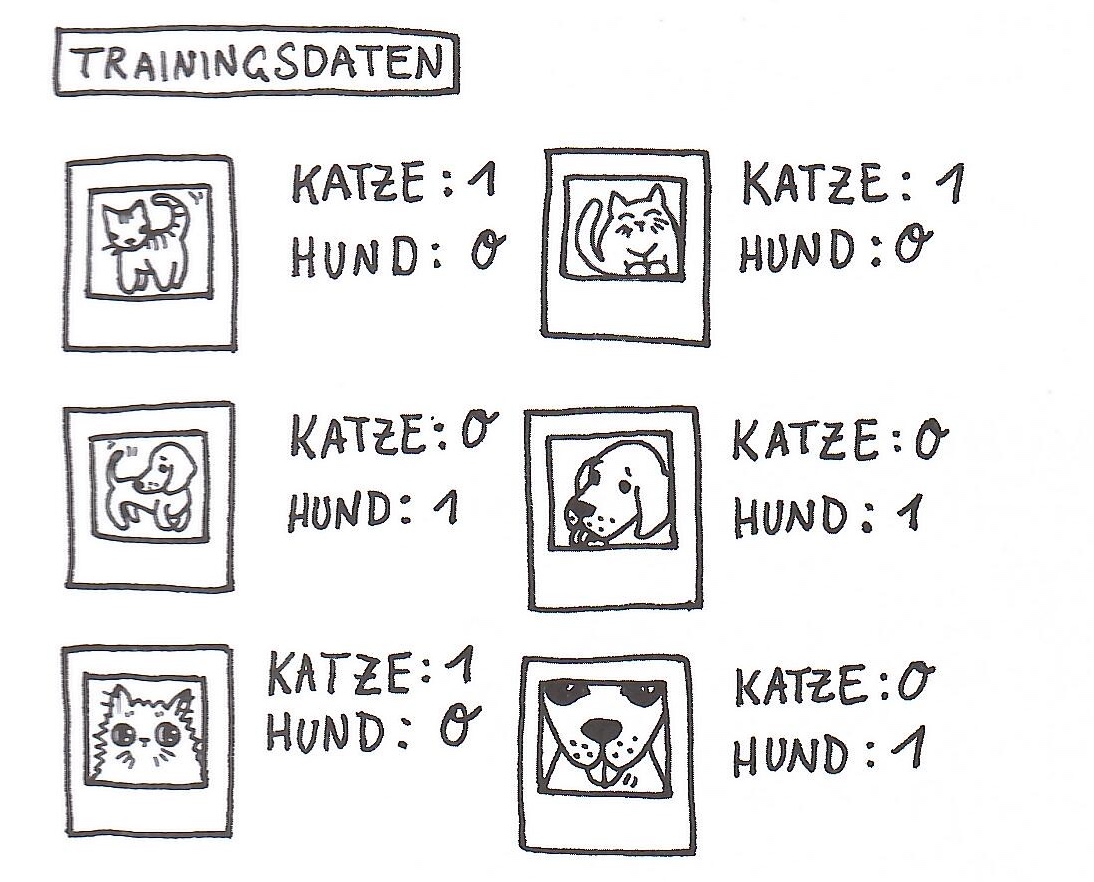 TRAININGSDATEN
KATZE: 1
HUND: 0
KATZE: 1
HUND: 0
KATZE: 0
HUND: 1
KATZE: 0
HUND: 1
KATZE: 1
HUND: 0
KATZE: 0
HUND: 1